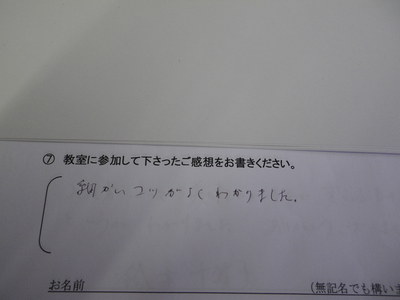 ⑦ 教室に参加して下さったご感想をお書きください。
細かいコツがよくわかりました。
お名前 (無記名でも構いま